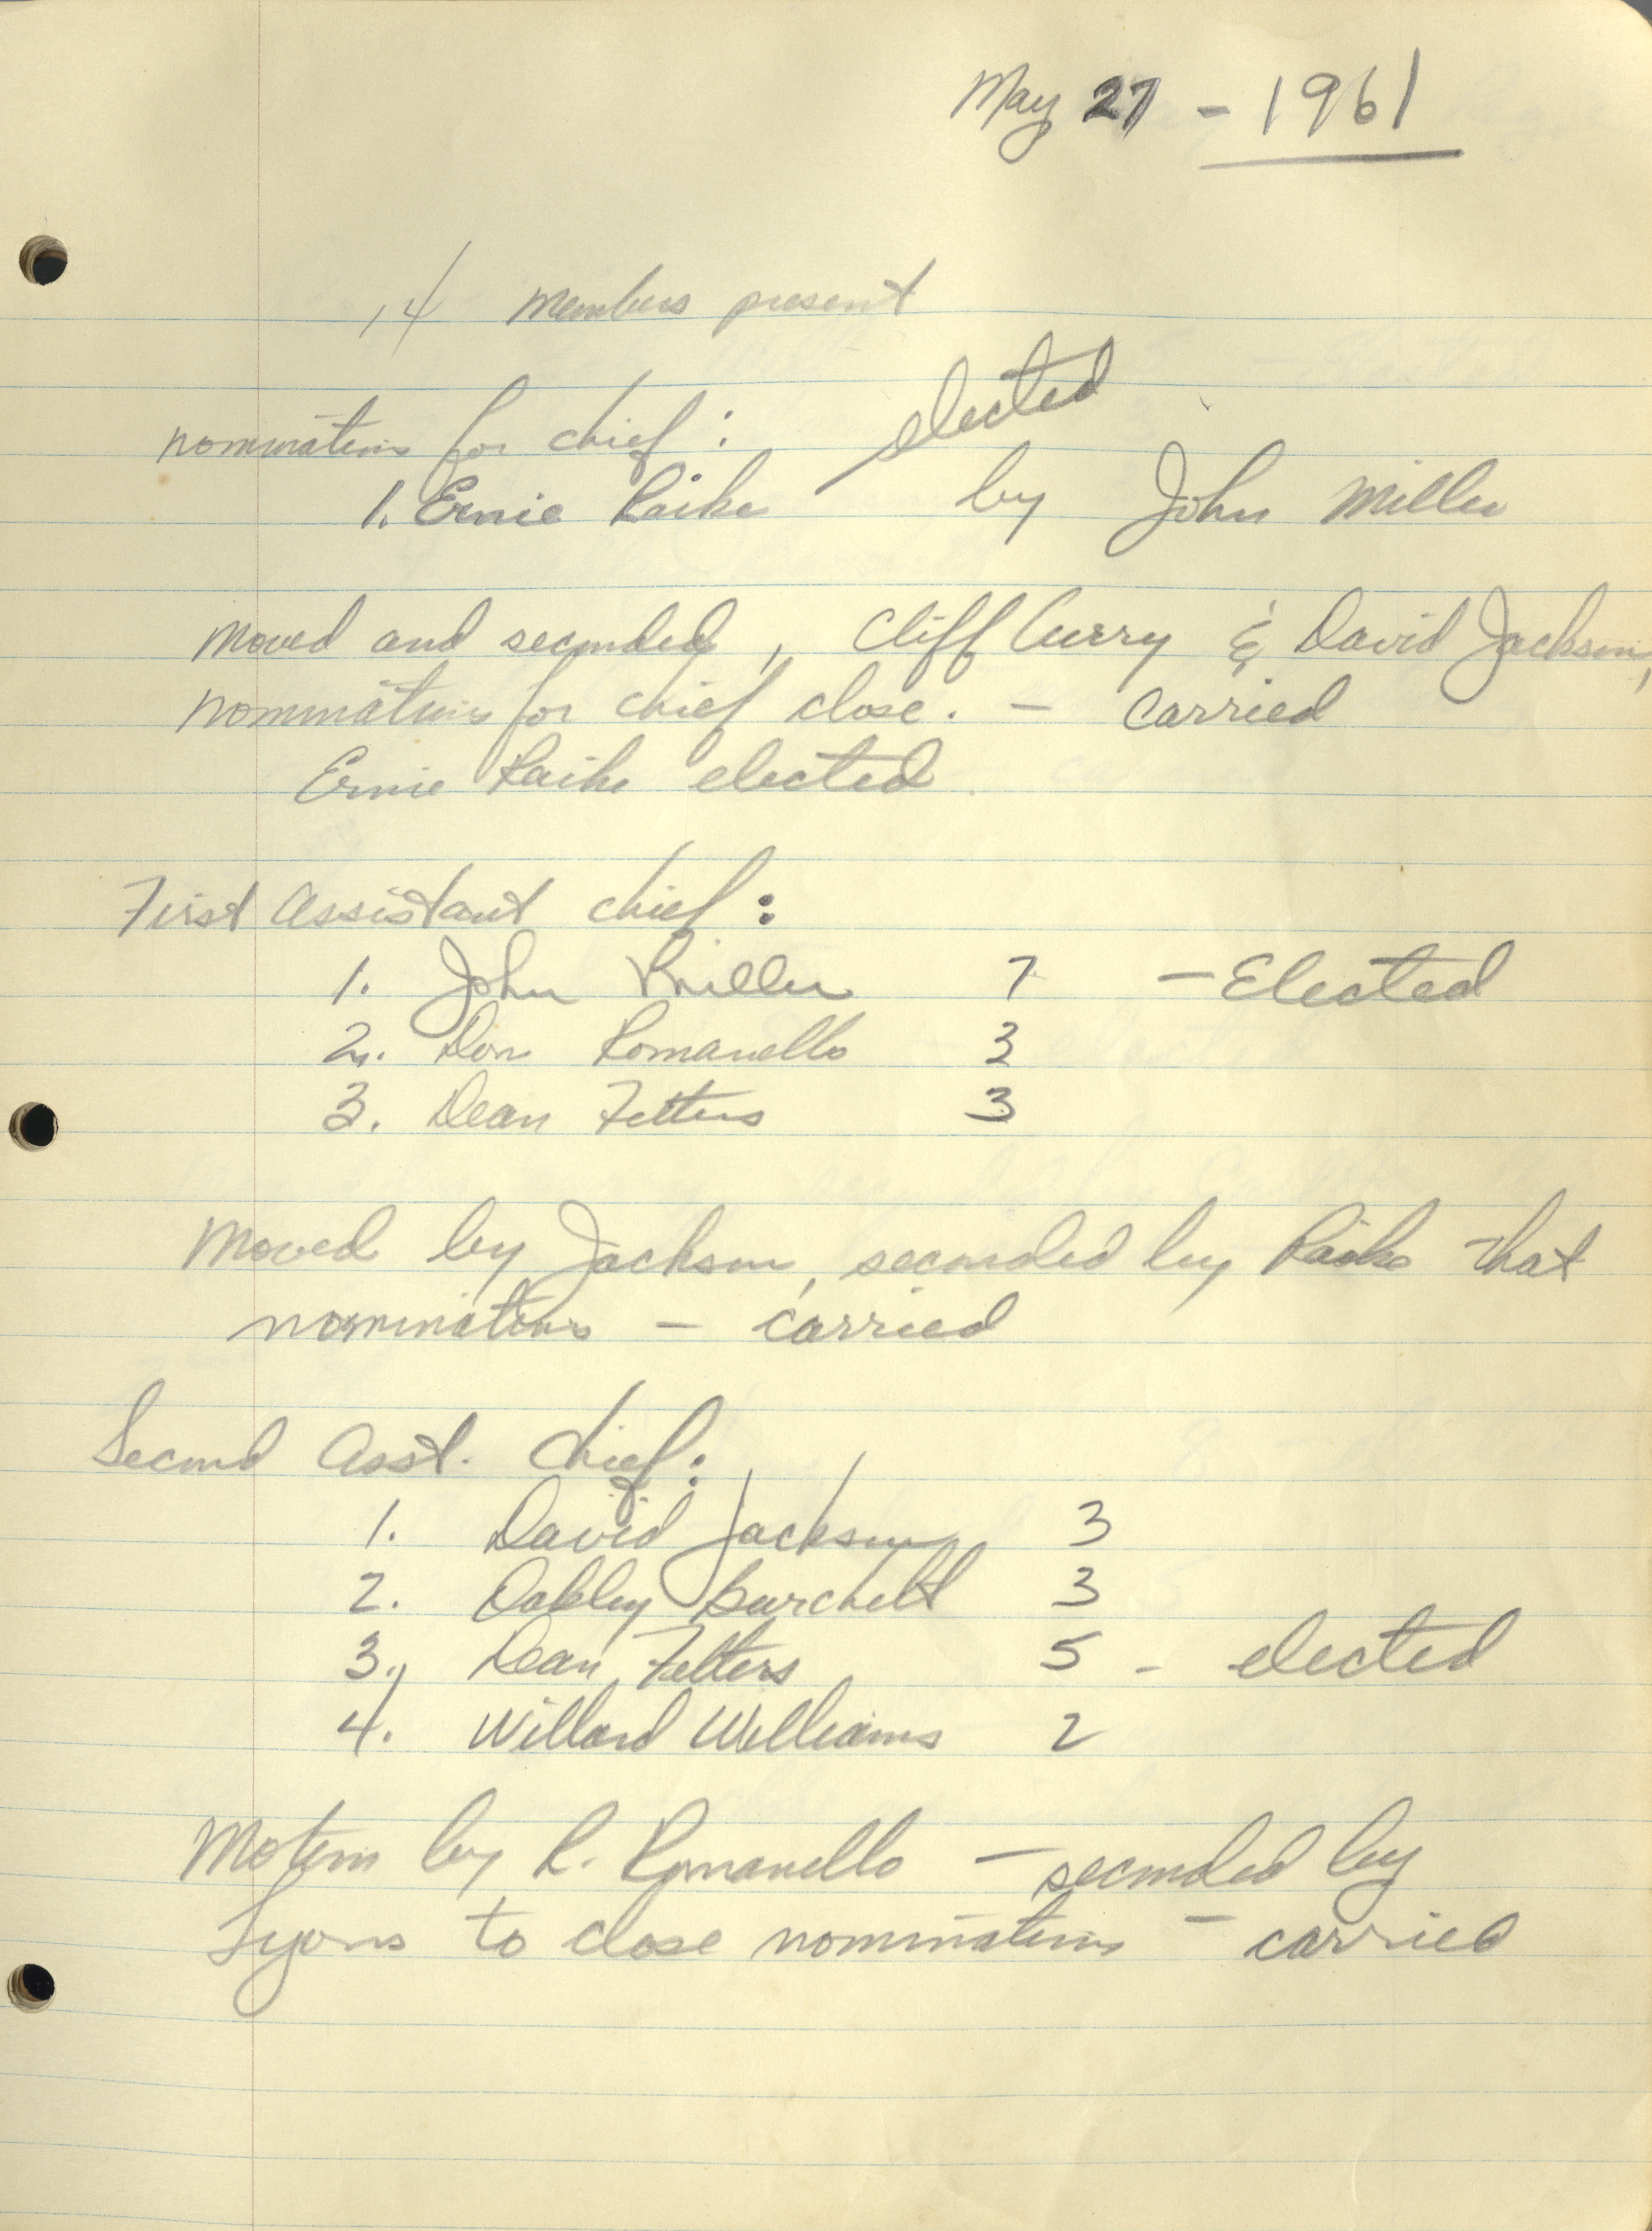 May 27 - 1961
14 members present
nominations for chief : elected
1. Ernie Raike by John Miller
moved and seconded, Cliff Curry & David Jackson,
nominations for chief close. - carried
Ernie Raike elected.
First Assistant chief :
1. John Miller 7 - Elected
2. Don Romanello 3
3. Dean Fetters 3
Moved by Jackson, seconded by Raike that
nominations - carried
Second Asst. Chief :
1. David Jackson 3
2. Oakley Burchett 3
3. Dean Fetters 5 - elected
4. Willard Williams 2
Motion by R. Romanello - seconded by
Lyons to close nominations - carried